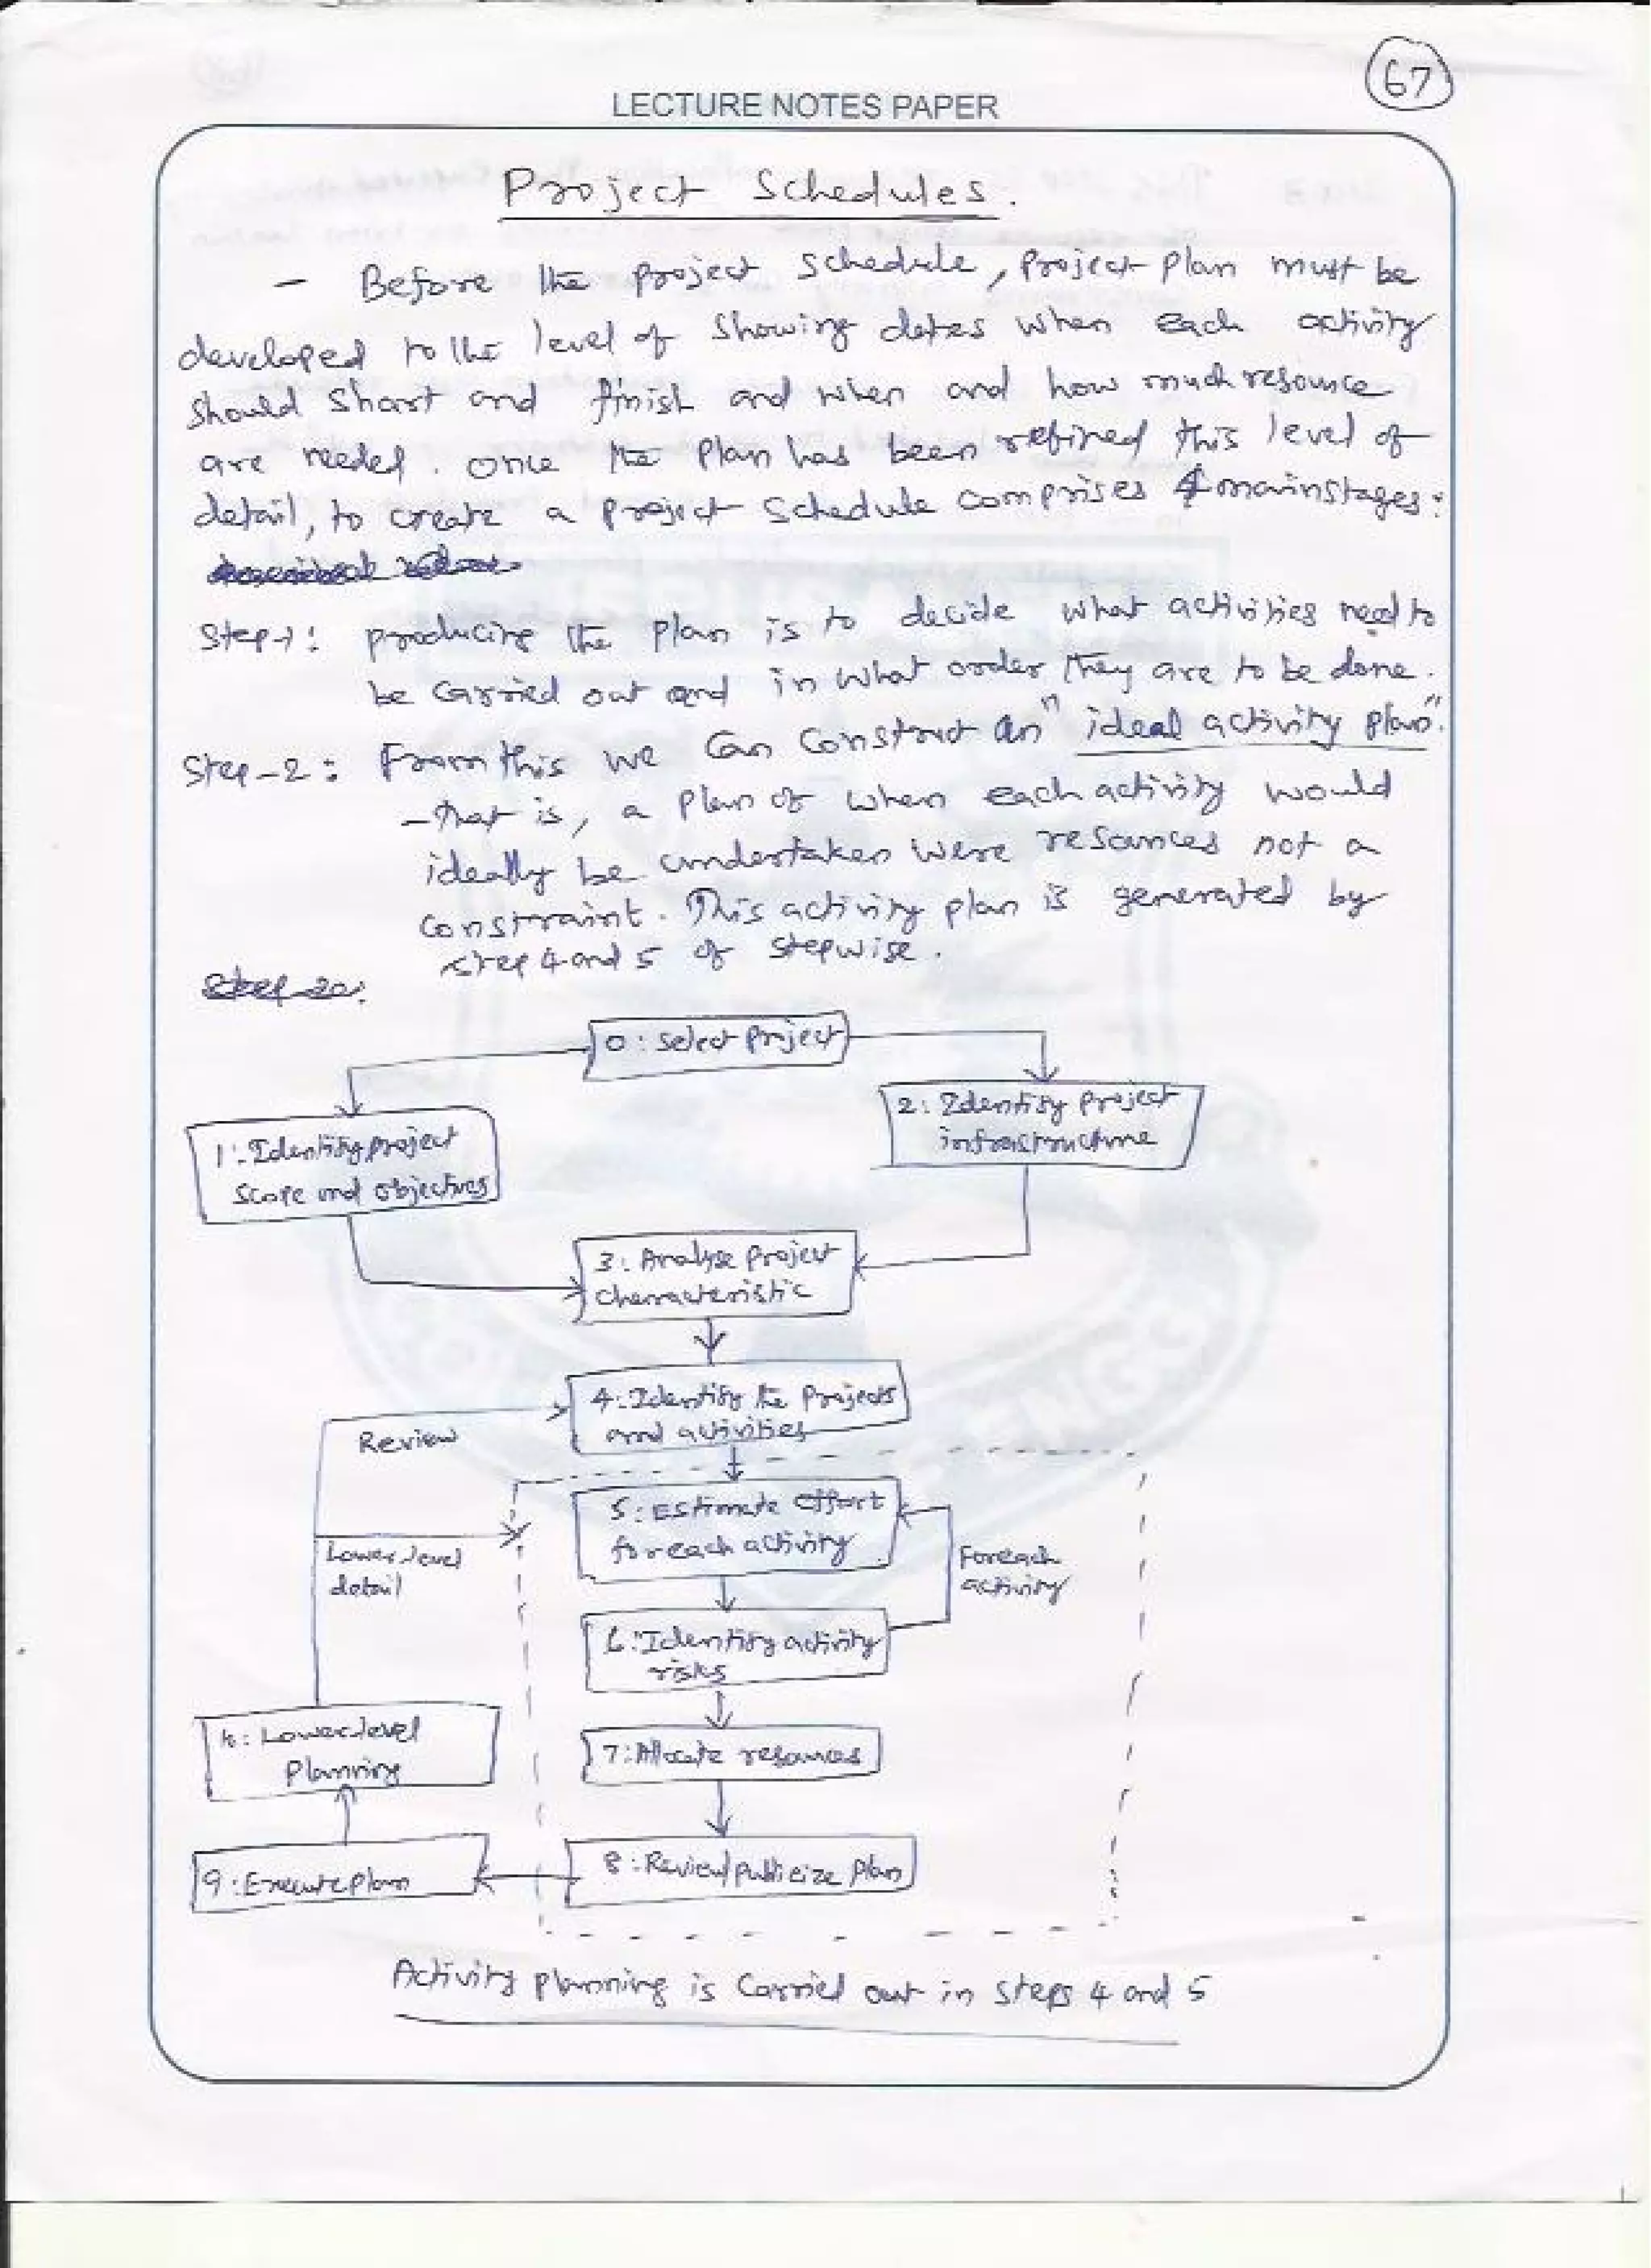 67
LECTURE NOTES PAPER
Project Schedules.
- Before the project schedule, project plan must be
developed to the level of showing dates when each activity
should start and finish and when and how much resource
are needed. once the plan has been refined this level of
detail, to create a project schedule comprises 4 main stages:
Step-1: producing the plan is to decide what activities need to
be carried out and in what order they are to be done.
Step-2: From this we can construct an "ideal activity plan".
- that is, a plan of when each activity would
ideally be undertaken were resources not a
constraint. This activity plan is generated by
step 4 and 5 of stepwise.
0: Select project
2: Identify project
infrastructure
1: Identify project
scope and objectives
3: Analyse project
characteristic
4: Identify the projects
and activities
Review
5: Estimate effort
for each activity
Lower level
detail
For each
activity
6: Identify activity
risks
: Lower level
planning
7: Allocate resources
8: Review/publicize plan
9: Execute plan
Activity planning is carried out in steps 4 and 5